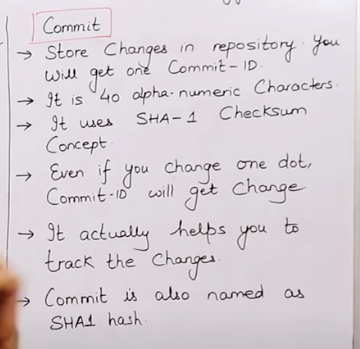 Commit
→ Store Changes in repository. You
will get one Commit-ID.
→ It is 40 alpha-numeric Characters.
→ It uses SHA-1 Checksum
Concept.
→ Even if you change one dot,
Commit-ID will get Change
→ It actually helps you to
track the Changes.
→ Commit is also named as
SHA1 hash.